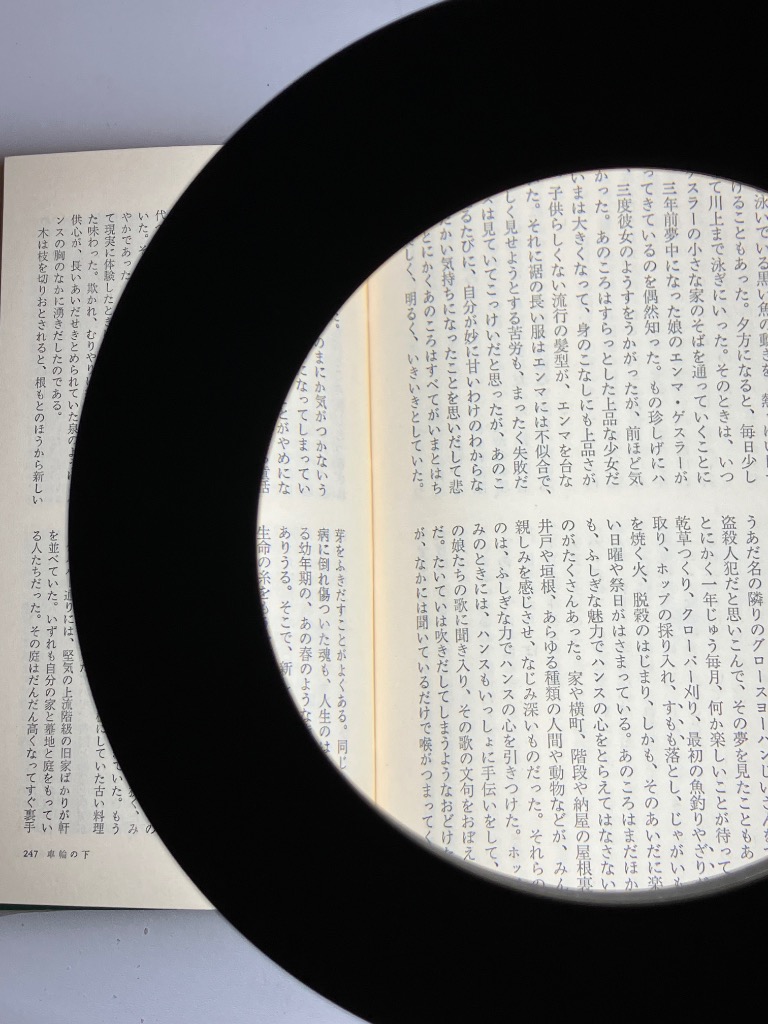 泳いでいる黒い魚の動きを
けることもあった。夕方になると、毎日少し
て川上まで泳ぎにいった。そのときは、いつ
スラーの小さな家のそばを通っていくことに
三年前夢中になった娘のエンマ・ゲスラーが
ってきているのを偶然知った。もの珍しげにハ
三度彼女のようすをうかがったが、前ほど気
かった。あのころはすらっとした上品な少女だ
いまは大きくなって、身のこなしにも上品さが
子供らしくない流行の髪型が、エンマを台な
た。それに裾の長い服はエンマには不似合で、
しく見せようとする苦労も、まったく失敗だ
スは見ていてこっけいだと思ったが、あのこ
るたびに、自分が妙に甘いわけのわからな
たかい気持ちになったことを思いだして悲
とにかくあのころはすべてがいまとはち
しく、明るく、いきいきとしていた。
うあだ名の隣りのグロースヨハンじいさんを
盗殺人犯だと思いこんで、その夢を見たこともあ
とにかく一年じゅう毎月、何か楽しいことが待って
乾草つくり、クローバー刈り、最初の魚釣りやざり
取り、ホップの採り入れ、すもも落とし、じゃがいも
を焼く火、脱穀のはじまり、しかも、そのあいだに楽
い日曜や祭日がはさまっている。あのころはまだほか
も、ふしぎな魅力でハンスの心をとらえてはなさない
のがたくさんあった。家や横町、階段や納屋の屋根裏
井戸や垣根、あらゆる種類の人間や動物などが、みん
親しみを感じさせ、なじみ深いものだった。それらの
のは、ふしぎな力でハンスの心を引きつけた。ホッ
みのときには、ハンスもいっしょに手伝いをして、
の娘たちの歌に聞き入り、その歌の文句をおぼえ
だ。たいていは吹きだしてしまうようなおどけた
が、なかには聞いているだけで喉がつまってく
のまにか気がつかないう
になってしまってい
とがやめにな
昔話
代
いた。そ
やかであった
て現実に体験したとき
た味わった。欺かれ、むりやり
供心が、長いあいだせきとめられていた泉のよ
ンスの胸のなかに湧きだしたのである。
木は枝を切りおとされると、根もとのほうから新しい
芽をふきだすことがよくある。同じ
病に倒れ傷ついた魂も、人生のは
る幼年期の、あの春のような
ありうる。そこで、新し
生命の糸をも
の
み
ていた。もう
にしていた古い料理
通りには、堅気の上流階級の旧家ばかりが軒
を並べていた。いずれも自分の家と墓地と庭をもってい
る人たちだった。その庭はだんだん高くなってすぐ裏手
247 車輪の下